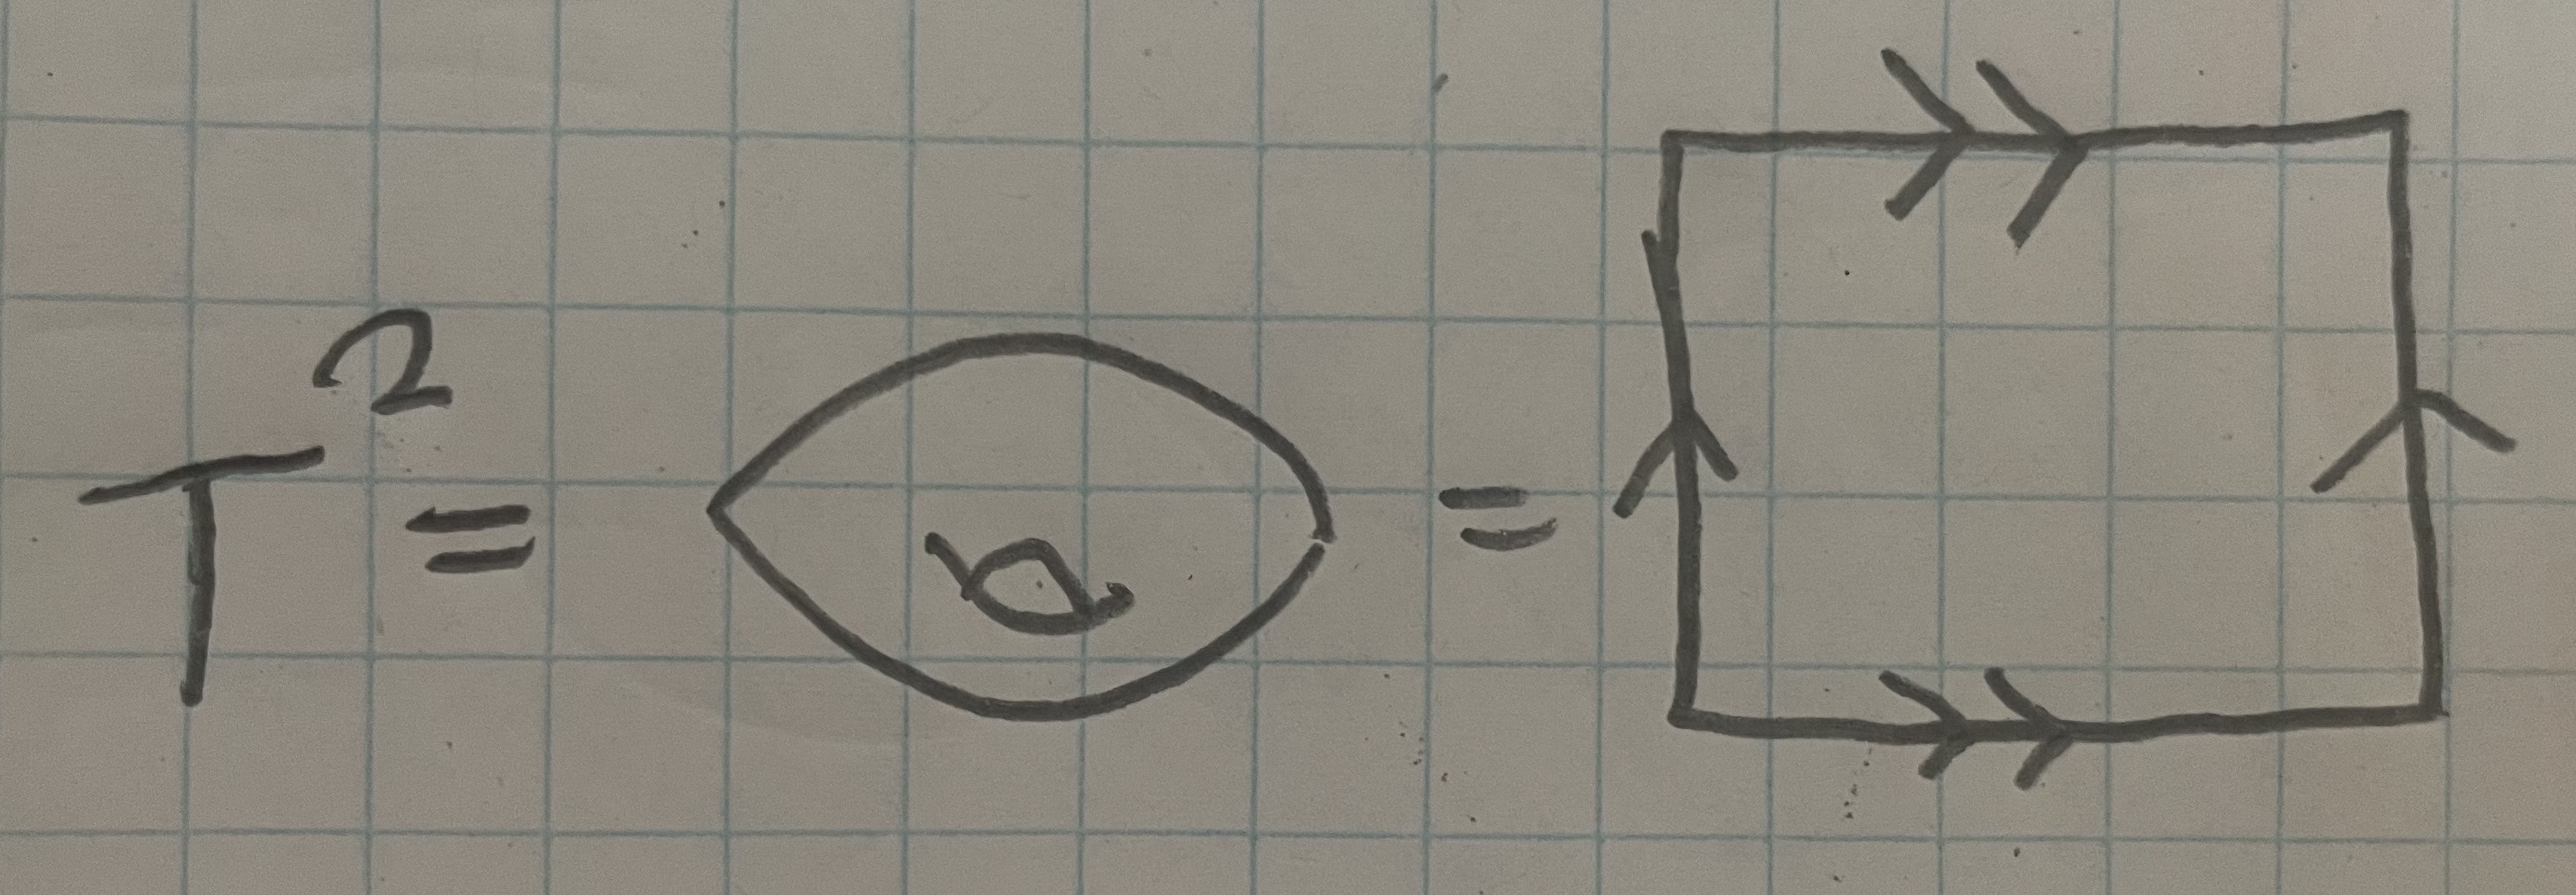 T² = =